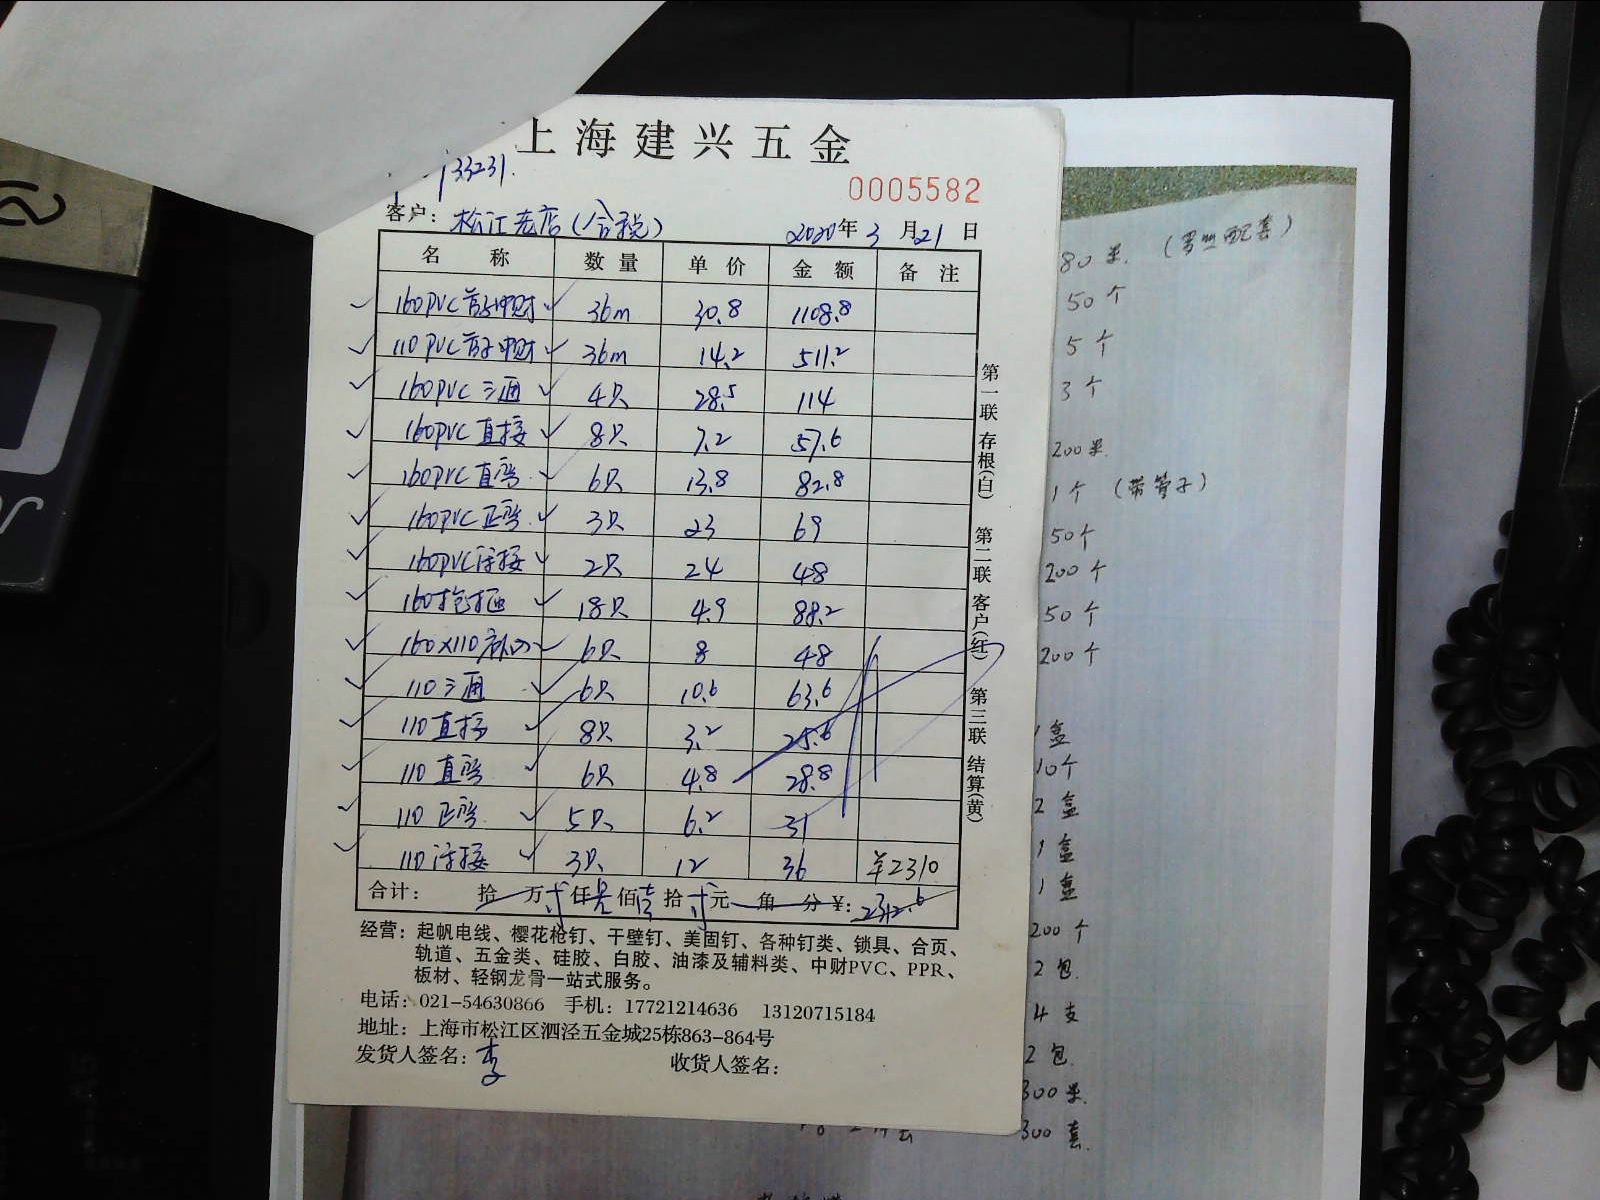 上海建兴五金
33231.
0005582
客户： 松江老店（含税） 2020年3月21日
名 称 数量 单价 金额 备注
160PVC 管子中财 36m 30.8 1108.8
110 PVC 管子中财 36m 14.2 511.2
160PVC 三通 4只 28.5 114
160PVC 直接 8只 7.2 57.6
160PVC 直弯 6只 13.8 82.8
160PVC 正弯 3只 23 69
160PVC 2只 24 48
160 18只 4.9 88.2
160×110 补心 6只 8 48
110三通 6只 10.6 63.6
110直接 8只 3.2 25.6
110直弯 6只 4.8 28.8
110 正弯 5只 6.2 31
110 3只 12 36 ¥2310
合计： 拾 万 仟 佰 拾 元 角 分 ¥：2312.6
第一联 存根(白) 第二联 客户(红) 第三联 结算(黄)
经营：起帆电线、樱花枪钉、干壁钉、美固钉、各种钉类、锁具、合页、
轨道、五金类、硅胶、白胶、油漆及辅料类、中财PVC、PPR、
板材、轻钢龙骨一站式服务。
电话：021-54630866 手机：17721214636 13120715184
地址：上海市松江区泗泾五金城25栋863-864号
发货人签名：李 收货人签名：
80米.（骨架配套）
50个
5个
3个
200米.
1个（带管子）
50个
200个
50个
200个
1盒
10个
2盒
1盒
1盒
200个
2包.
4支
2包.
300米.
300套.